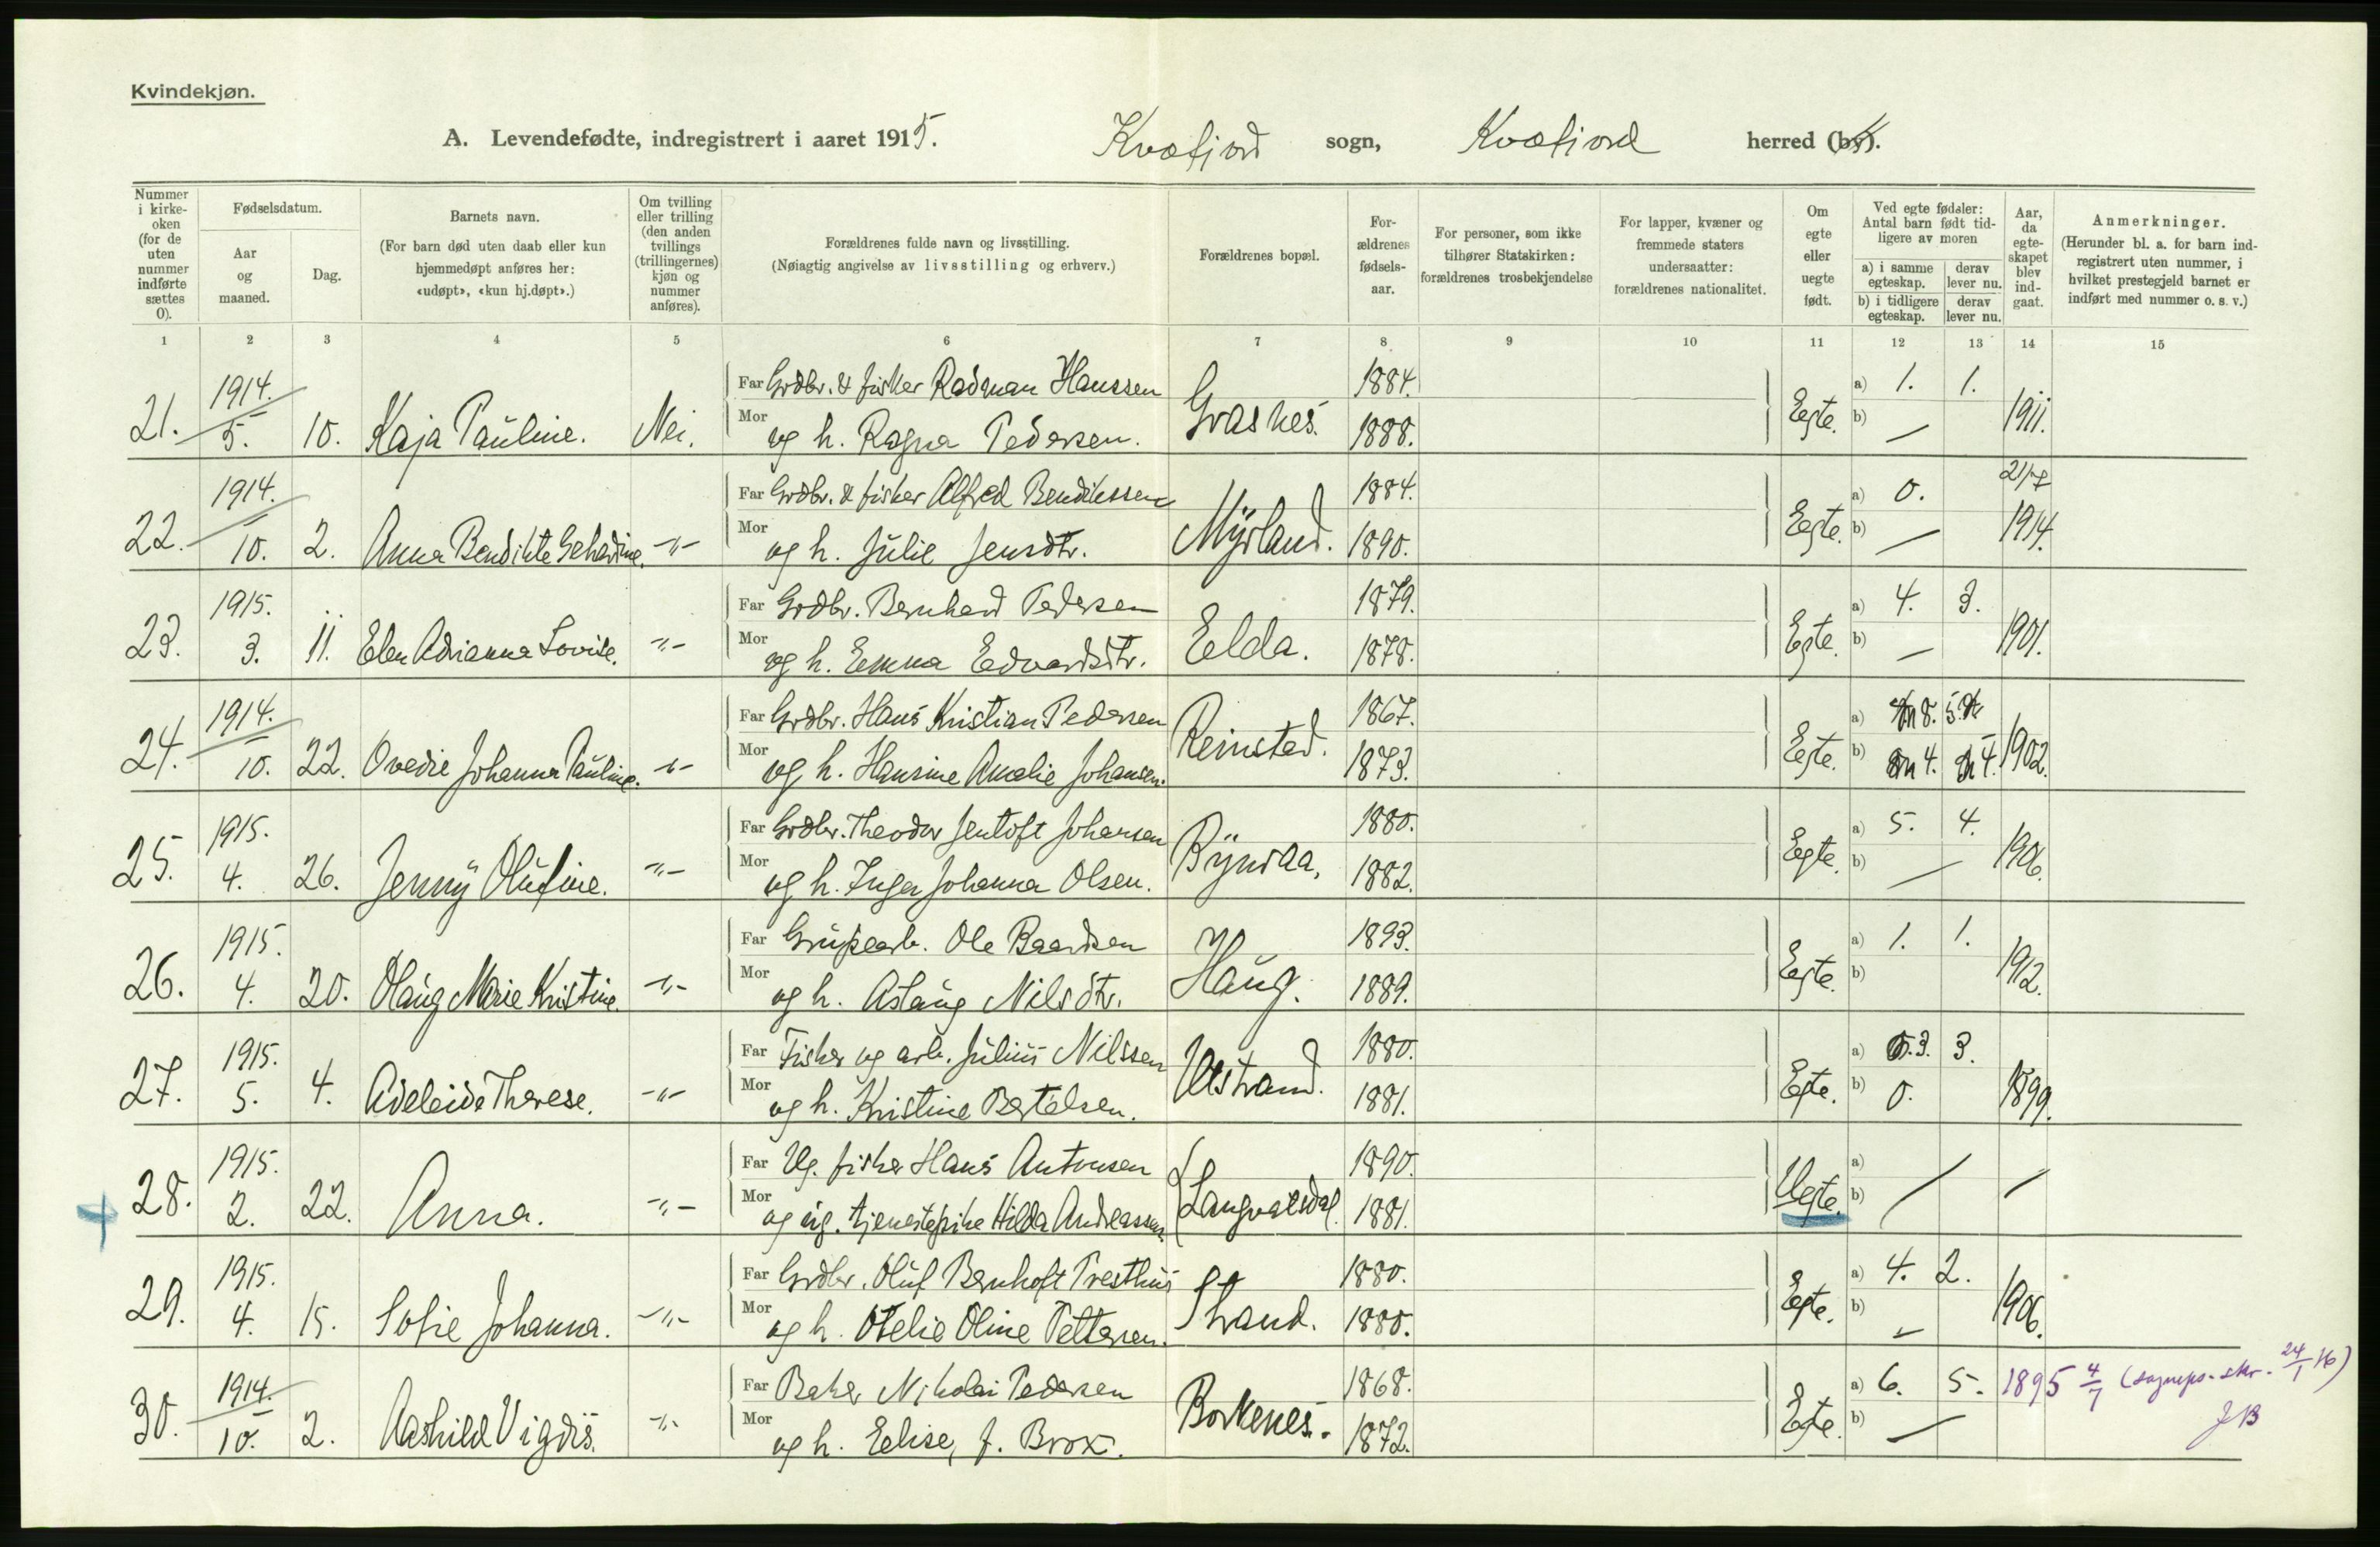 Kvindekjøn.
A. Levendefødte, indregistrert i aaret 1915. Kvæfjord sogn, Kvæfjord herred (by).
Nummer i kirke-oken (for de uten nummer indførte sættes 0).
Fødselsdatum.
Aar og maaned.
Dag.
Barnets navn.
(For barn død uten daab eller kun hjemmedøpt anføres her: «udøpt», «kun hj.døpt».)
Om tvilling eller trilling (den anden tvillings (trillingernes) kjøn og nummer anføres).
Forældrenes fulde navn og livsstilling.
(Nøiagtig angivelse av livsstilling og erhverv.)
Forældrenes bopæl.
For-ældrenes fødsels-aar.
For personer, som ikke tilhører Statskirken: forældrenes trosbekjendelse
For lapper, kvæner og fremmede staters undersaatter: forældrenes nationalitet.
Om egte eller uegte født.
Ved egte fødsler: Antal barn født tid-ligere av moren
a) i samme egteskap.
derav lever nu.
b) i tidligere egteskap.
derav lever nu.
Aar, da egte-skapet blev ind-gaat.
Anmerkninger.
(Herunder bl. a. for barn ind-registrert uten nummer, i hvilket prestegjeld barnet er indført med nummer o. s. v.)
1 2 3 4 5 6 7 8 9 10 11 12 13 14 15
1914. Far Grdbr. & fisker Radman Hanssen 1884. a) 1. 1.
21. 5. 10. Kaja Pauline. Nei. Mor og h. Ragna Pedersen. Grasnes. 1888. Egte. b) — 1911.
1914. Far Grdbr. & fisker Alfred Bendikssen 1884. a) 0.
22. 10. 2. Anna Bendikte Gehardine. -"- Mor og h. Julie Jensdtr. Myrland. 1890. Egte. b) — 1914.
1915. Far Grdbr. Bernhard Pedersen 1879. a) 4. 3.
23. 3. 11. Elen Adrianna Lovise. -"- Mor og h. Emma Edvardsdtr. Elda. 1878. Egte. b) — 1901.
1914. Far Grdbr. Hans Kristian Pedersen 1867. a) 8. 5.
24. 10. 22. Ovedie Johanna Pauline. -"- Mor og h. Hansine Amalie Johansen. Reinstad. 1873. Egte. b) 4. 4. 1902.
1915. Far Grdbr. Theodor Jentoft Johansen 1880. a) 5. 4.
25. 4. 26. Jenny Olufine. -"- Mor og h. Inga Johanna Olsen. Rynsaa. 1882. Egte. b) — 1906.
1915. Far Grubearb. Ole Baardsen 1893. a) 1. 1.
26. 4. 20. Olaug Marie Kristine. -"- Mor og h. Aslaug Nilsdtr. Haug. 1889. Egte. b) 1912.
1915. Far Fisker og arb. Julius Nilssen 1880. a) 3. 3.
27. 5. 4. Adeleide Therese. -"- Mor og h. Kristine Bertelsen. Utstrand. 1881. Egte. b) 0. 1899.
1915. Far Ug. fisker Hans Antonsen 1890. a)
28. 2. 22. Anna. -"- Mor og ug. tjenestepike Hilda Andreassen. Langvatsdal. 1881. Uegte. b) — —
1915. Far Grdbr. Oluf Bernhoft Presthus 1880. a) 4. 2.
29. 4. 15. Sofie Johanna. -"- Mor og h. Otelie Oline Pettersen. Strand. 1880. Egte. b) — 1906.
1914. Far Baker Nikolai Pedersen 1868. a) 6. 5. 1895 4/7 (sognepr. skr. 24/1 16)
30. 10. 2. Aashild Vigdis. -"- Mor og h. Elise, f. Brox. Borkenes. 1872. Egte. b) — JB